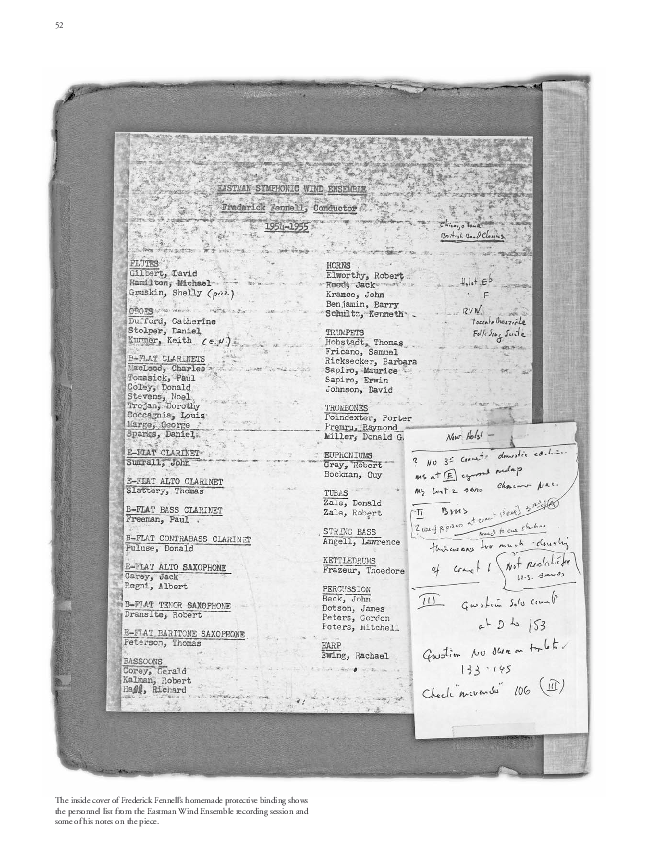 52
EASTMAN SYMPHONIC WIND ENSEMBLE
Frederick Fennell, Conductor
1954-1955
British Band Classics
FLUTES
Gilbert, David
Hamilton, Michael
Gruskin, Shelly (picc.)
OBOES
Dufford, Catherine
Stolper, Daniel
Kummer, Keith (E.H.)
B-FLAT CLARINETS
MacLeod, Charles
Tomasick, Paul
Coley, Donald
Stevens, Noel
Trojan, Dorothy
Soccagnia, Louis
Marge, George
Sparks, Daniel
E-FLAT CLARINET
Sumrall, John
E-FLAT ALTO CLARINET
Slattery, Thomas
B-FLAT BASS CLARINET
Freeman, Paul
B-FLAT CONTRABASS CLARINET
Puluse, Donald
E-FLAT ALTO SAXOPHONE
Carey, Jack
Regni, Albert
B-FLAT TENOR SAXOPHONE
Dransite, Robert
E-FLAT BARITONE SAXOPHONE
Peterson, Thomas
BASSOONS
Corey, Gerald
Kalman, Robert
Richard
HORNS
Elworthy, Robert
Jack
Kramce, John
Benjamin, Barry
Schultz, Kenneth
TRUMPETS
Hohstadt, Thomas
Fricano, Samuel
Ricksecker, Barbara
Sapiro, Maurice
Sapiro, Erwin
Johnson, David
TROMBONES
Poindexter, Porter
Premru, Raymond
Miller, Donald G.
EUPHONIUMS
Gray, Robert
Bockman, Guy
TUBAS
Zale, Donald
Zale, Robert
STRING BASS
Angell, Lawrence
KETTLEDRUMS
Frazeur, Theodore
PERCUSSION
Beck, John
Dotson, James
Peters, Gordon
Peters, Mitchell
HARP
Ewing, Rachael
Holst Eb
F
R.V.W.
Toccata Marziale
Folk Song Suite
New Holst -
II
III Question Solo cornet
at D to 153
Question No
133-145
Check 106 (III)
The inside cover of Frederick Fennell's homemade protective binding shows
the personnel list from the Eastman Wind Ensemble recording session and
some of his notes on the piece.